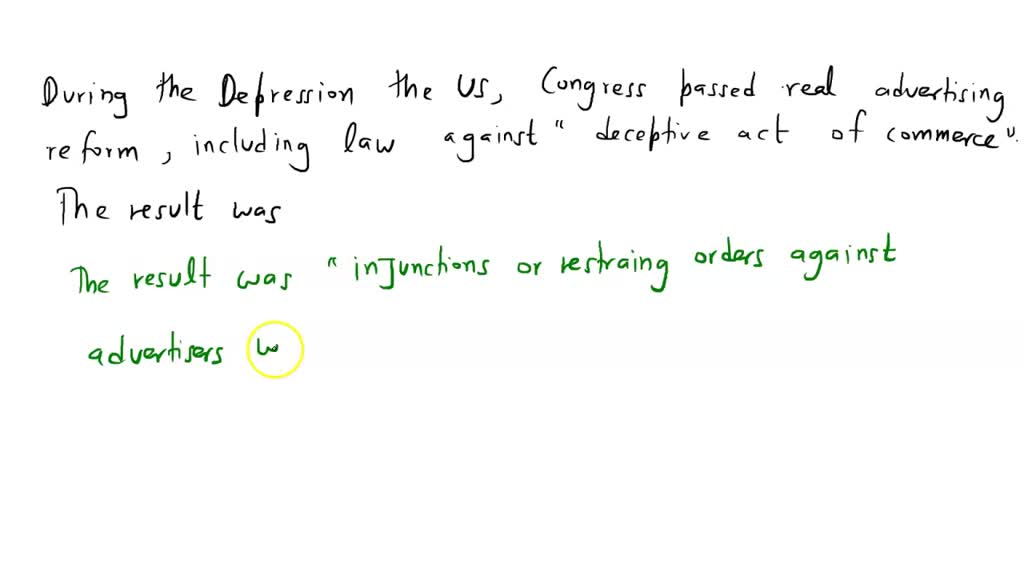 During the Depression the US, Congress passed real advertising
reform, including law against " deceptive act of commerce".
The result was
The result was " injunctions or restraing orders against
advertisers w